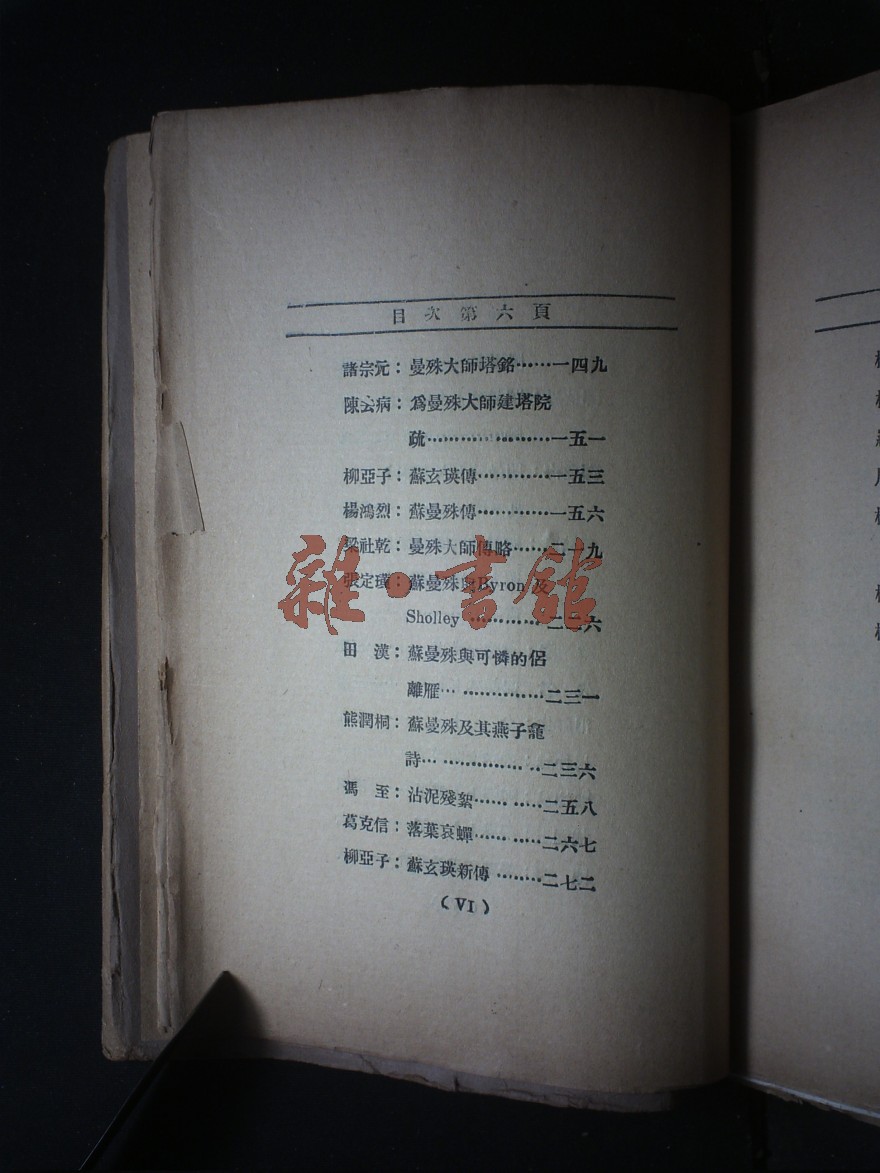 目次第六頁
諸宗元：曼殊大師塔銘……一四九
陳去病：爲曼殊大師建塔院
疏…………………一五一
柳亞子：蘇玄瑛傳…………一五三
楊鴻烈：蘇曼殊傳…………一五六
梁社乾：曼殊大師傳略……二一九
張定璜：蘇曼殊與Byron及
Sholley…………二二六
田　漢：蘇曼殊與可憐的侶
離雁………………二三一
熊潤桐：蘇曼殊及其燕子龕
詩…………………二三六
馮　至：沾泥殘絮…………二五八
葛克信：落葉哀蟬…………二六七
柳亞子：蘇玄瑛新傳………二七二
(VI)
雜·書館